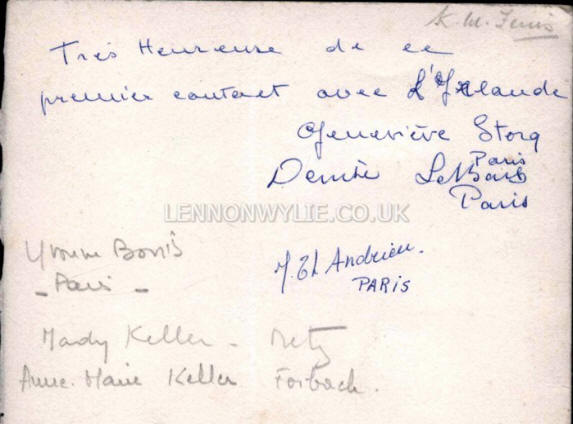 K. M.
Très Heureuse de ce
premier contact avec L'Irlande
Geneviève Storq
Paris
Denise LeBars
Paris
LENNONWYLIE.CO.UK
Yvonne
- Paris -
M. Th Andrieu.
PARIS
Mady Keller - Metz
Anne-Marie Keller Forbach.